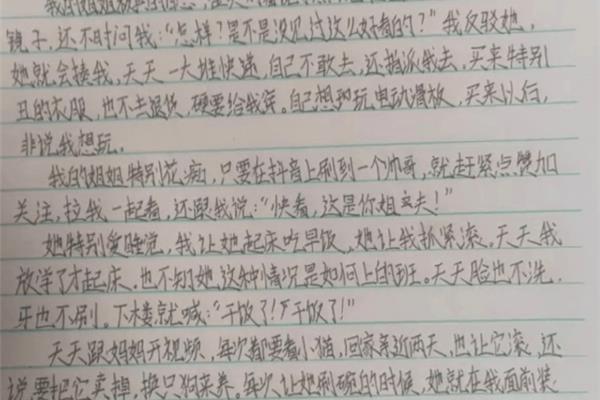 我的姐姐
镜子,还不时问我:“怎样?是不是没见过这么好看的?”我反驳她,
她就会揍我,天天一大堆快递,自己不敢去,还指派我去,买来特别
丑的衣服,也不去退货,硬要给我穿。自己想玩电动滑板,买来以后,
非说我想玩。
我的姐姐特别花痴,只要在抖音上刷到一个帅哥,就赶紧点赞加
关注,拉我一起看,还跟我说:“快看,这是你姐丈夫!”
她特别爱睡觉,我让她起床吃早饭,她让我抓紧滚,天天我
放学了才起床,也不知她这种情况是如何上的班。天天脸也不洗,
牙也不刷。下楼就喊:“干饭了!干饭了!”
天天跟妈妈开视频,每次都要看小猫,回家亲近两天,也让它滚,还
说要把它卖掉,换只狗来养。每次让她刷碗的时候,她就在我面前装